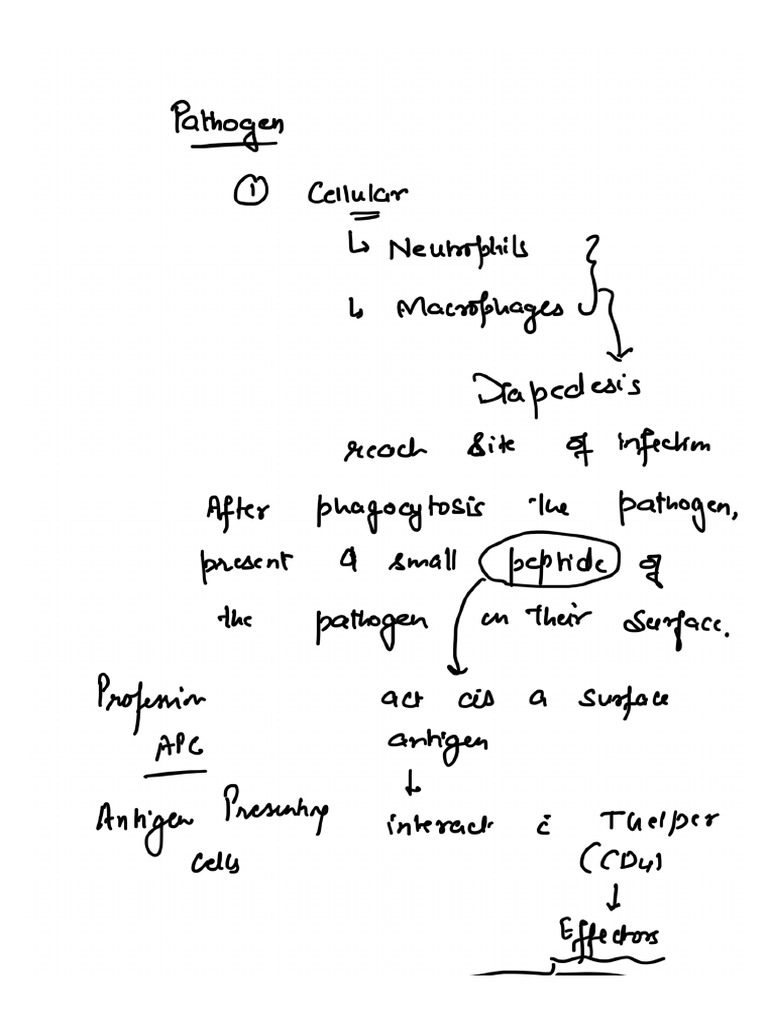 Pathogen
① Cellular
↳ Neutrophils
↳ Macrophages
Diapedesis
reach site of infection
After phagocytosis the pathogen,
present a small peptide of
the pathogen on their surface.
Profession
APC
Antigen Presenting
cells
act as a surface
antigen
↓
interact c̄ T helper
(CD4)
↓
Effectors